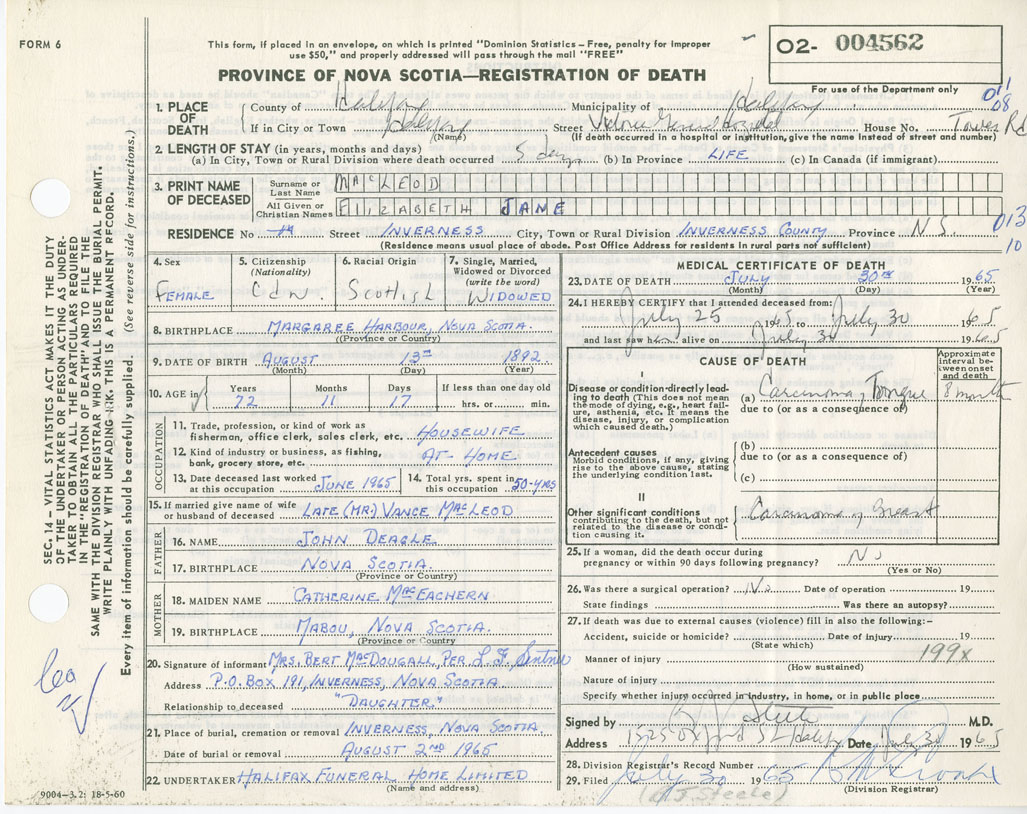 FORM 6
This form, if placed in an envelope, on which is printed "Dominion Statistics – Free, penalty for improper
use $50," and properly addressed will pass through the mail "FREE"
02- 004562
PROVINCE OF NOVA SCOTIA—REGISTRATION OF DEATH
For use of the Department only
68
1. PLACE OF DEATH
County of Halifax Municipality of Halifax
If in City or Town Halifax Street Victoria General Hospital House No. Tower Rd
(Name) (If death occurred in a hospital or institution, give the name instead of street and number)
2. LENGTH OF STAY (in years, months and days)
(a) In City, Town or Rural Division where death occurred 5 days (b) In Province LIFE (c) In Canada (if immigrant)
3. PRINT NAME OF DECEASED
Surname or Last Name MACLEOD
All Given or Christian Names ELIZABETH JANE
RESIDENCE No Street INVERNESS City, Town or Rural Division INVERNESS COUNTY Province N S.
(Residence means usual place of abode. Post Office Address for residents in rural parts not sufficient)
013
10
4. Sex
FEMALE
5. Citizenship
(Nationality)
Cdn.
6. Racial Origin
Scottish
7. Single, Married,
Widowed or Divorced
(write the word)
WIDOWED
8. BIRTHPLACE MARGAREE HARBOUR, NOVA SCOTIA.
(Province or Country)
9. DATE OF BIRTH AUGUST 13TH 1892
(Month) (Day) (Year)
10. AGE in
Years Months Days If less than one day old
72 11 17 hrs. or min.
OCCUPATION
11. Trade, profession, or kind of work as
fisherman, office clerk, sales clerk, etc. HOUSEWIFE
12. Kind of industry or business, as fishing,
bank, grocery store, etc. AT-HOME.
13. Date deceased last worked
at this occupation JUNE 1965
14. Total yrs. spent in
this occupation 50-YRS
15. If married give name of wife
or husband of deceased LATE (MR.) VANCE MACLEOD
FATHER
16. NAME JOHN DEAGLE.
17. BIRTHPLACE NOVA SCOTIA.
(Province or Country)
MOTHER
18. MAIDEN NAME CATHERINE MACEACHERN
19. BIRTHPLACE MABOU, NOVA SCOTIA.
(Province or Country
20. Signature of informant MRS. BERT MACDOUGALL, PER.
Address P.O. BOX 191, INVERNESS, NOVA SCOTIA
Relationship to deceased "DAUGHTER."
21. Place of burial, cremation or removal INVERNESS, NOVA SCOTIA.
Date of burial or removal AUGUST 2ND 1965
22. UNDERTAKER HALIFAX FUNERAL HOME LIMITED
(Name and address)
9004–3.2: 18-5-60
MEDICAL CERTIFICATE OF DEATH
23. DATE OF DEATH JULY 30TH 1965
(Month) (Day) (Year)
24. I HEREBY CERTIFY that I attended deceased from:
July 25 1965 to July 30 1965
and last saw her alive on July 30 1965
CAUSE OF DEATH
Approximate
interval be-
tween onset
and death
I
Disease or condition directly lead-
ing to death (This does not mean
the mode of dying, e.g., heart fail-
ure, asthenia, etc. It means the
disease, injury, or complication
which caused death.)
(a) Carcinoma, Tongue 8 months
due to (or as a consequence of)
Antecedent causes
Morbid conditions, if any, giving
rise to the above cause, stating
the underlying condition last.
(b)
due to (or as a consequence of)
(c)
II
Other significant conditions
contributing to the death, but not
related to the disease or condi-
tion causing it.
Carcinoma of breast
25. If a woman, did the death occur during
pregnancy or within 90 days following pregnancy? No
(Yes or No)
26. Was there a surgical operation? No Date of operation 19
State findings Was there an autopsy?
27. If death was due to external causes (violence) fill in also the following:-
Accident, suicide or homicide? Date of injury 19
(State which)
Manner of injury 199x
(How sustained)
Nature of injury
Specify whether injury occurred in industry, in home, or in public place
Signed by Steele M.D.
Address 1325 Oxford St Halifax Date July 30 1965
28. Division Registrar's Record Number
29. Filed July 30 1965
(Division Registrar)
(A J. Steele)
SEC. 14 – VITAL STATISTICS ACT MAKES IT THE DUTY
OF THE UNDERTAKER OR PERSON ACTING AS UNDER-
TAKER TO OBTAIN ALL THE PARTICULARS REQUIRED
IN THE "REGISTRATION OF DEATH" AND FILE THE
SAME WITH THE DIVISION REGISTRAR WHO SHALL ISSUE THE BURIAL PERMIT.
WRITE PLAINLY WITH UNFADING INK. THIS IS A PERMANENT RECORD.
Every item of information should be carefully supplied. (See reverse side for instructions.)